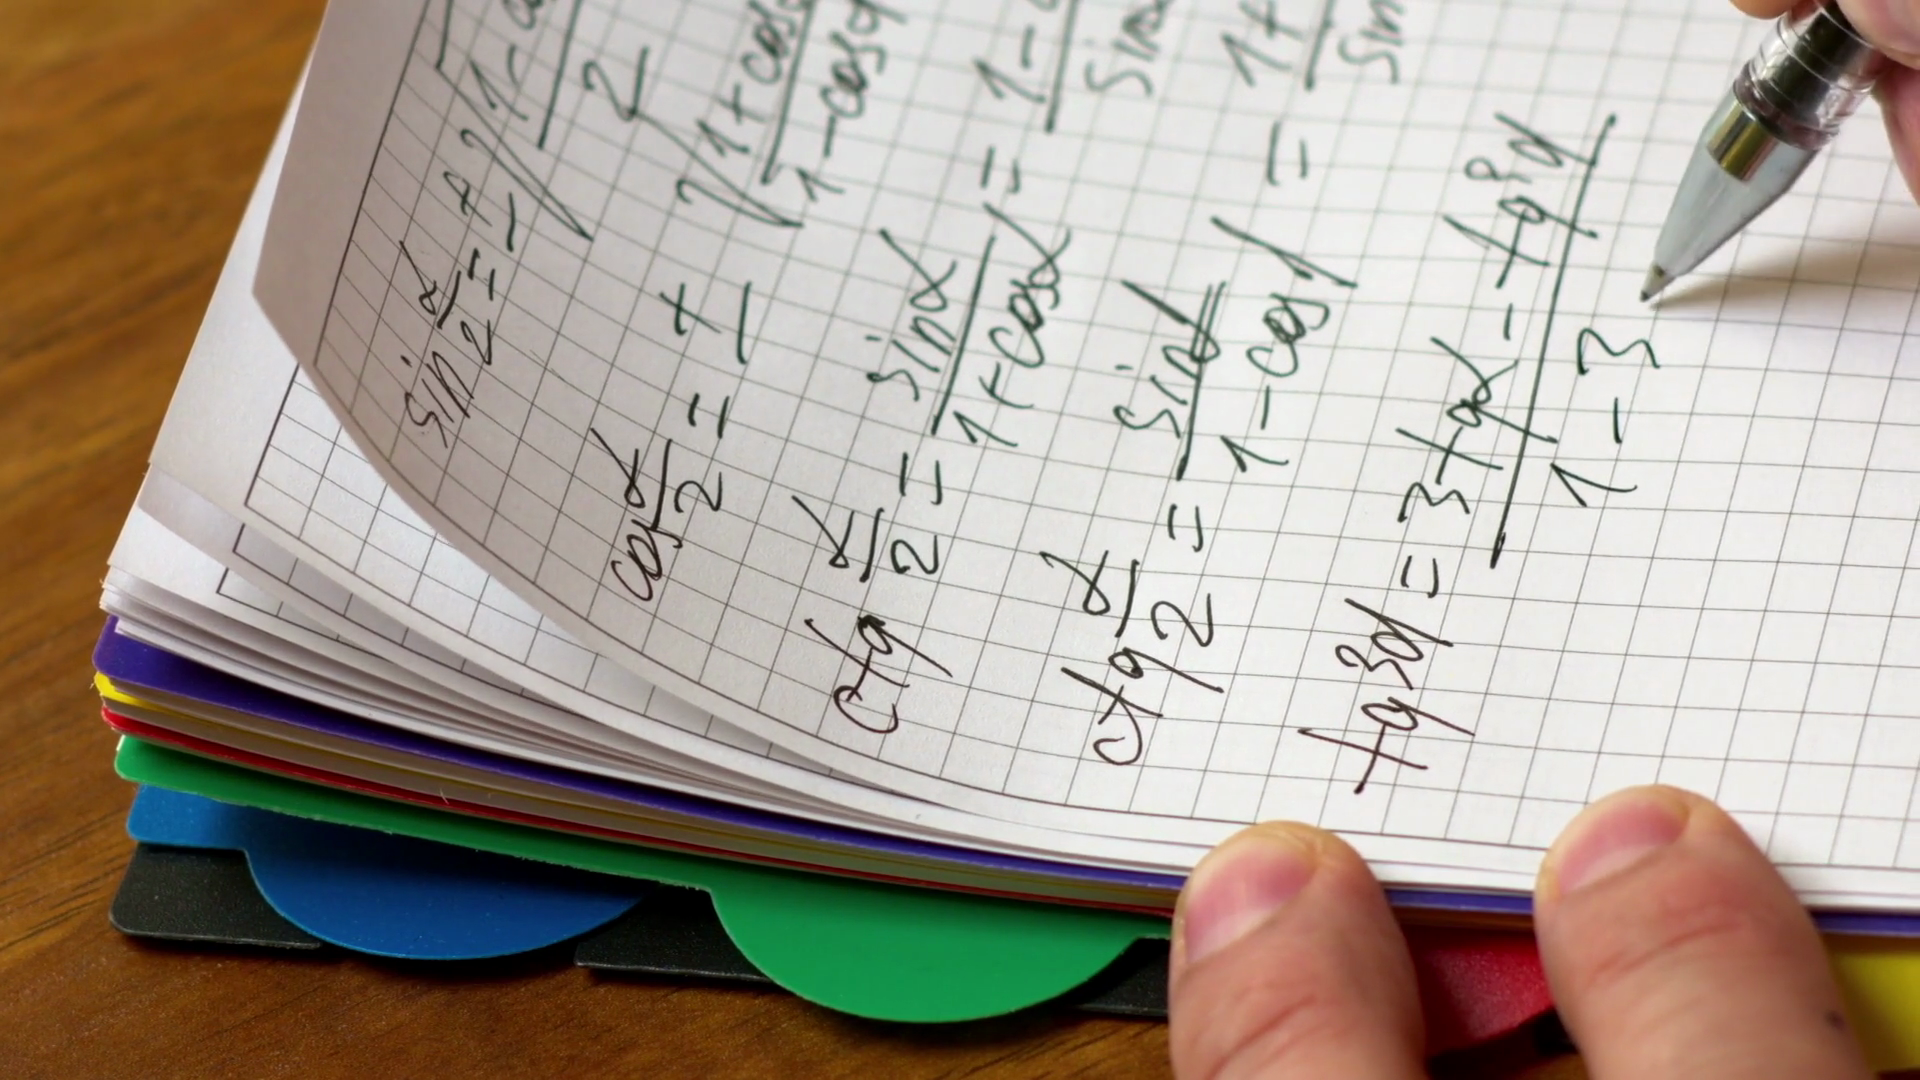 sin α/2 = ± √(1-co/2
cos α/2 = ± √(1+cosα/1-cosα
ctg α/2 = sinα/1+cosα = 1-c/sinα
ctg α/2 = sinα/1-cosα = 1+/sin
tg3α = 3tgα-tg³α/1-3